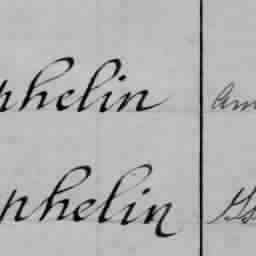 phelin Am
phelin